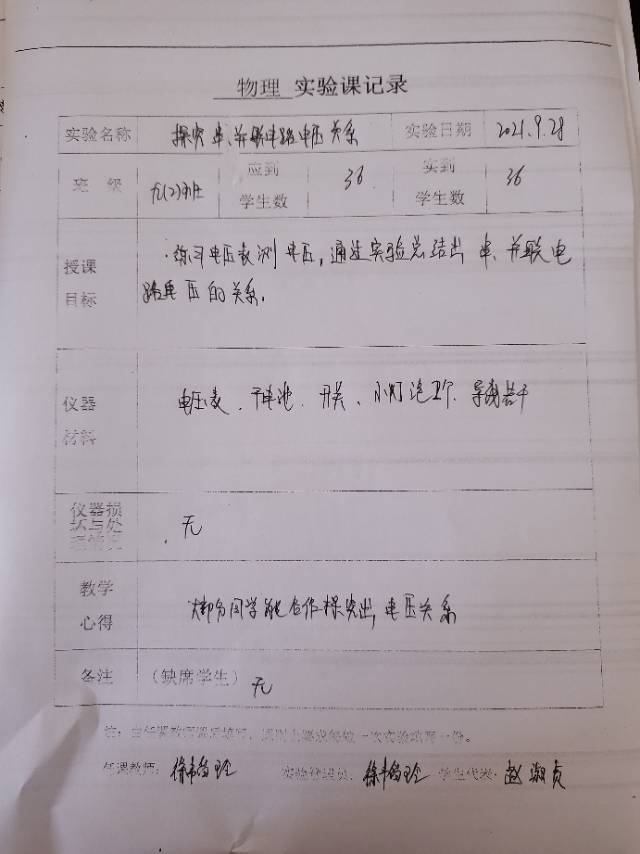 物理 实验课记录
实验名称 探究串、并联电路电压关系 实验日期 2021.9.28
班 级 九(2)班 应到学生数 36 实到学生数 36
授课目标
练习电压表测电压,通过实验总结出 串、并联电
路电压的关系.
仪器材料 电压表、干电池、开关、小灯泡 导线若干
仪器损坏与处理情况 无
教学心得 大部分同学能合作探究出,电压关系
备注 (缺席学生) 无
注:由任课教师课后填写,原则上要求每做一次实验填写一份。
任课教师: 实验管理员: 学生代表:赵淑贞